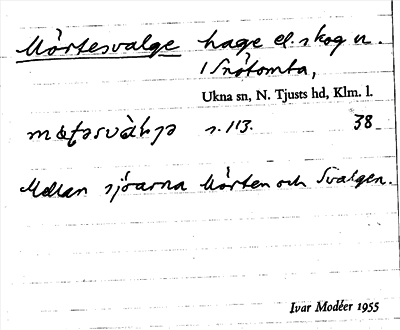 Mörtesvalge hage el. skog u.
Snötomta,
Ukna sn, N. Tjusts hd, Klm. l.
s. 113. 38
Mellan sjöarna Mörten och Svalgen.
Ivar Modéer 1955